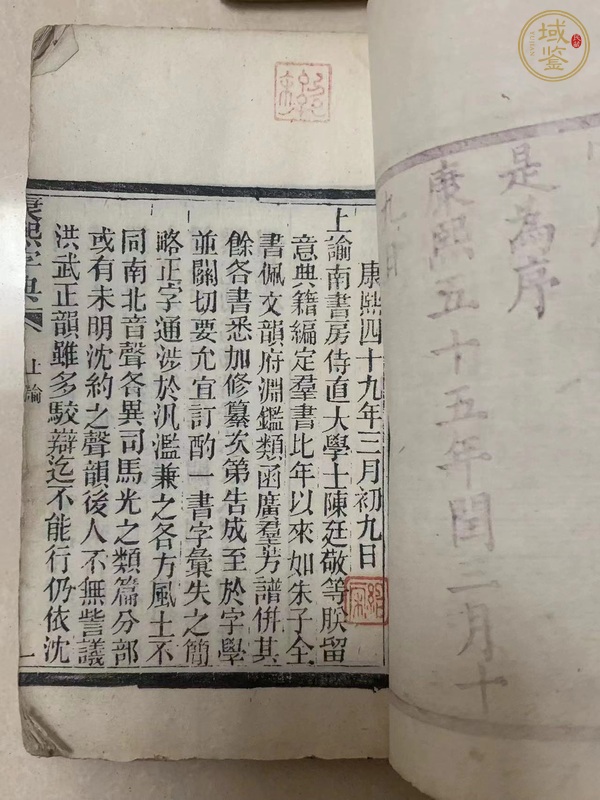 是為序
康熙五十五年閏三月十
九日
康熙四十九年三月初九日
上諭南書房侍直大學士陳廷敬等朕留
意典籍編定羣書比年以來如朱子全
書佩文韻府淵鑑類函廣羣芳譜併其
餘各書悉加修纂次第告成至於字學
並關切要允宜訂酌一書字彙失之簡
略正字通涉於汎濫兼之各方風土不
同南北音聲各異司馬光之類篇分部
或有未明沈約之聲韻後人不無訾議
洪武正韻雖多駮辯迄不能行仍依沈
康熙字典
上諭
一
域鑒
YUJIAN